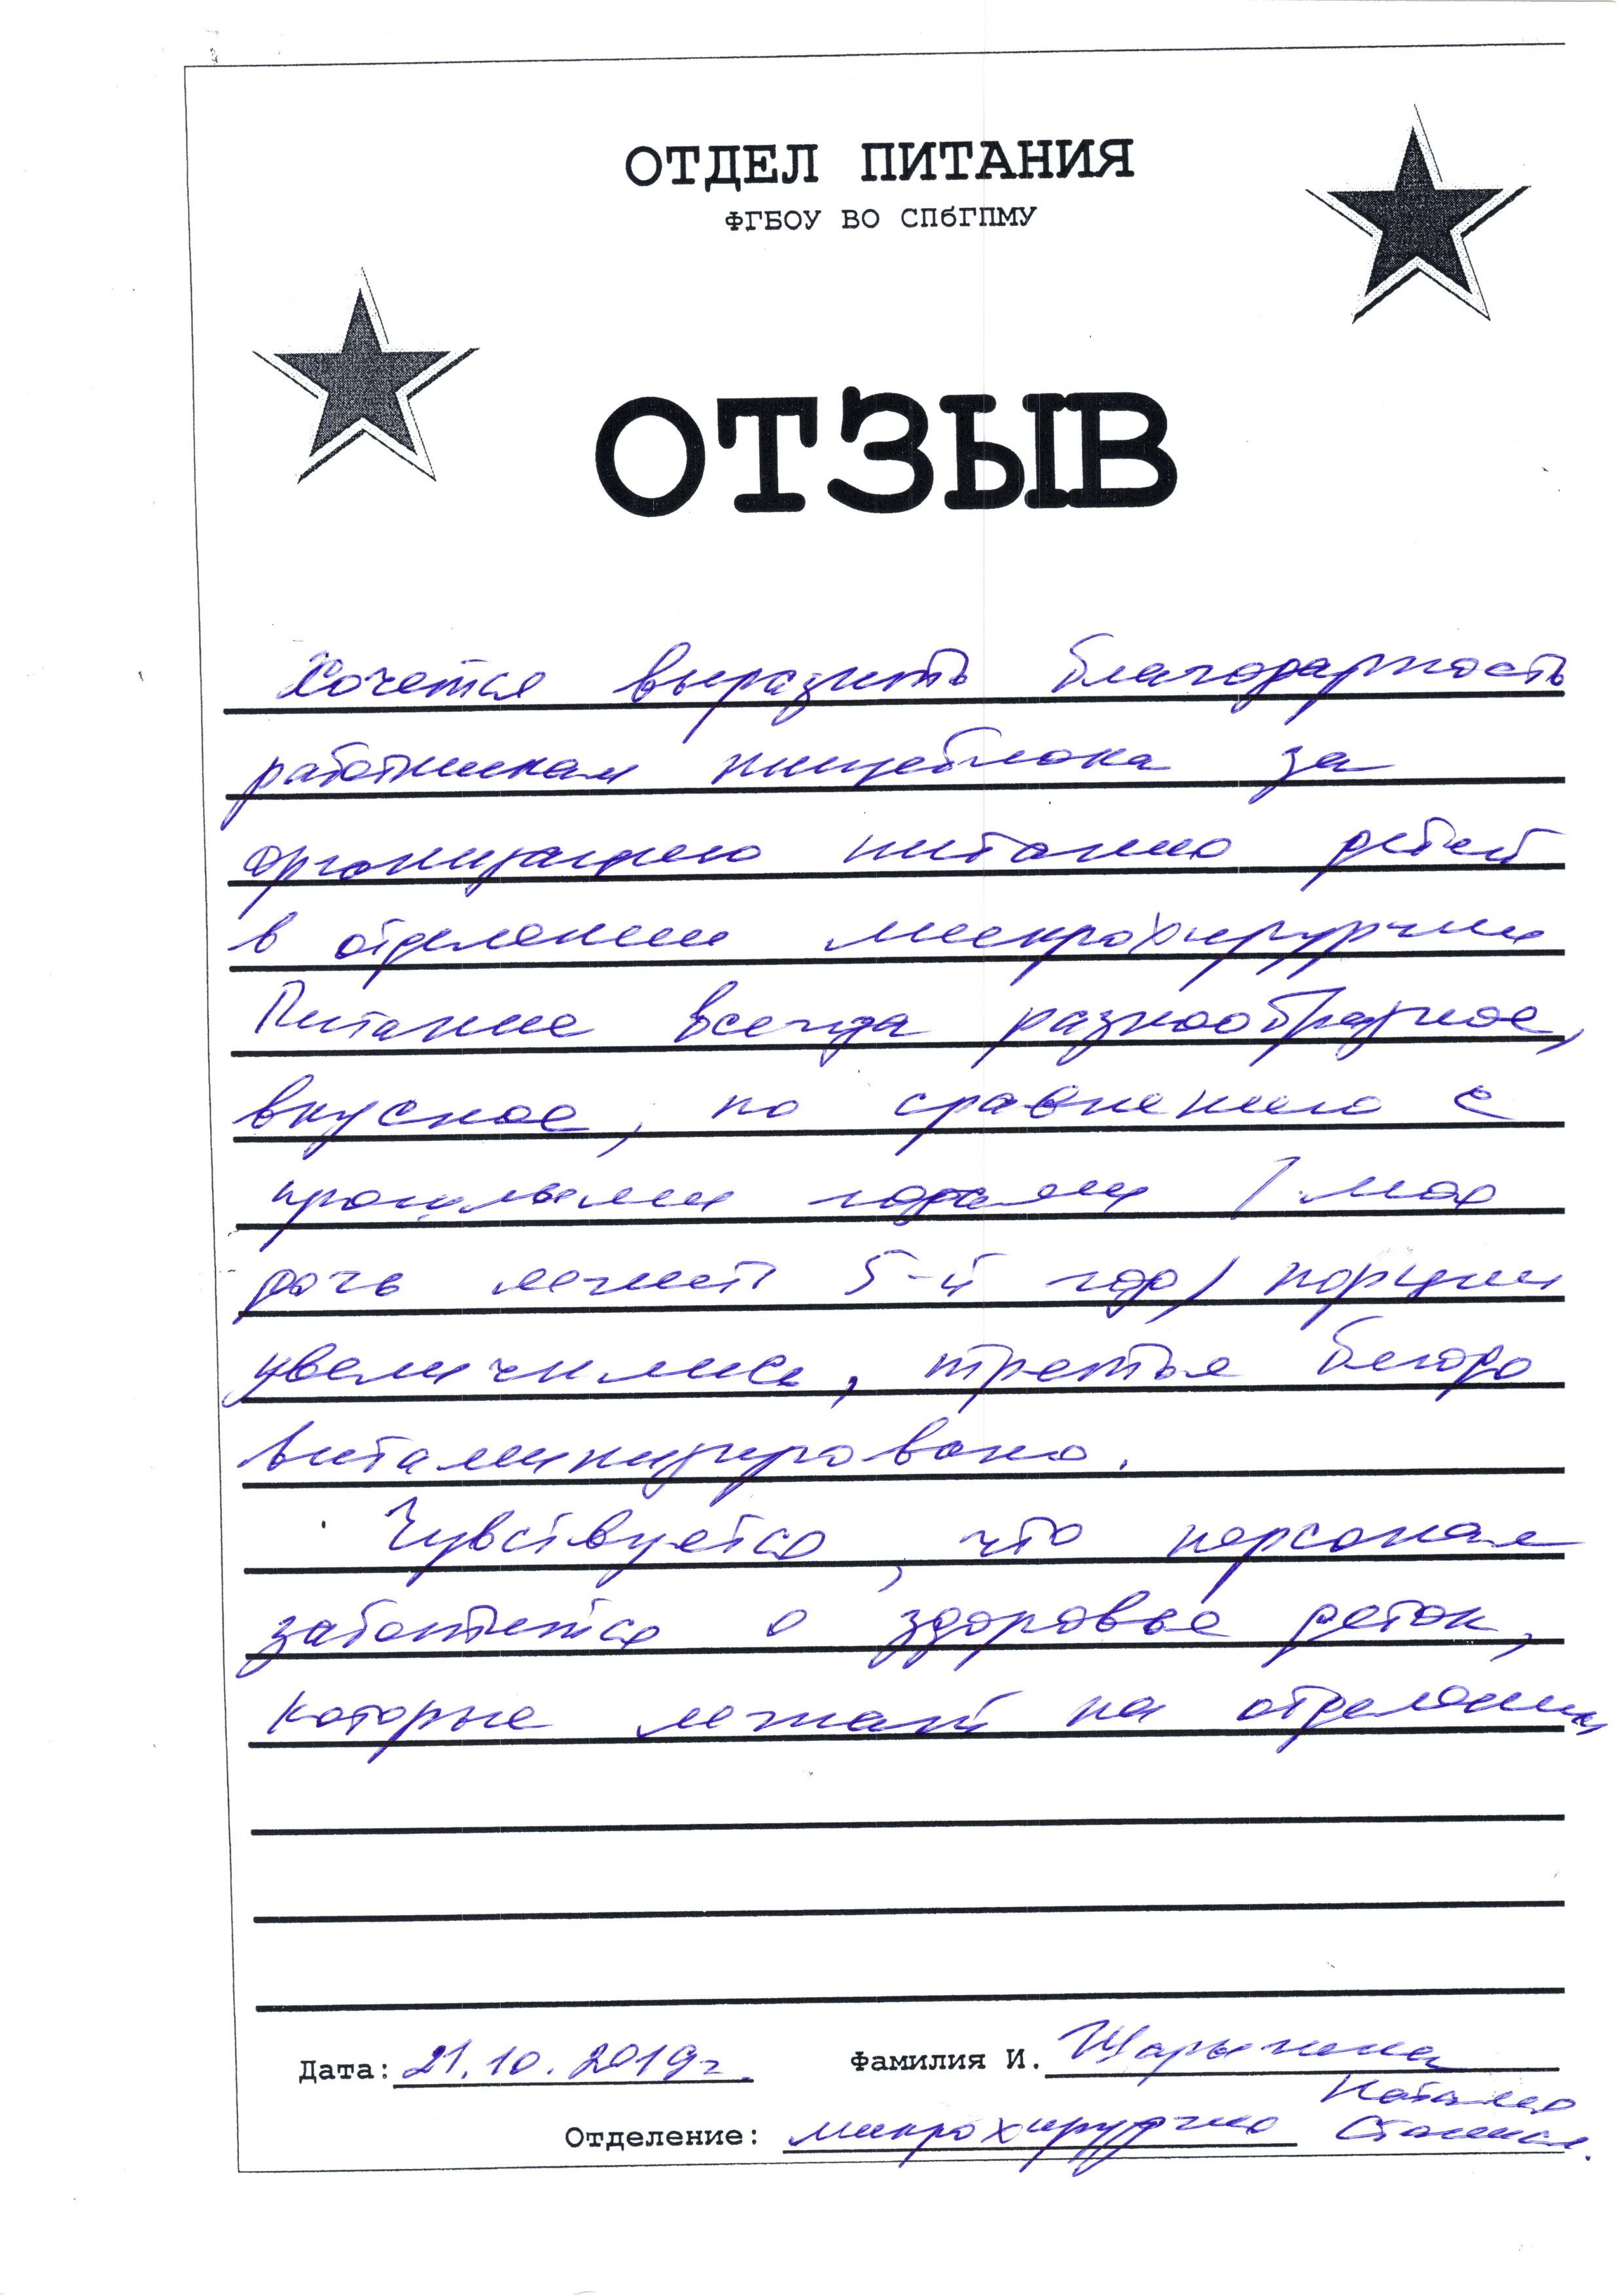 ОТДЕЛ ПИТАНИЯ
ФГБОУ ВО СПбГПМУ
ОТЗЫВ
Хочется выразить благодарность
работникам пищеблока за
организацию питания детей
в отделении микрохирургии
Питание всегда разнообразное,
вкусное, по сравнению с
прошлыми годами /моя
дочь лежит 5-й год/ порции
увеличились, третье блюдо
витаминизировано.
Чувствуется, что персонал
заботится о здоровье деток,
которые лежат на отделении
Дата: 21.10.2019г.
Фамилия И.
Наталья
Отделение: микрохирургия